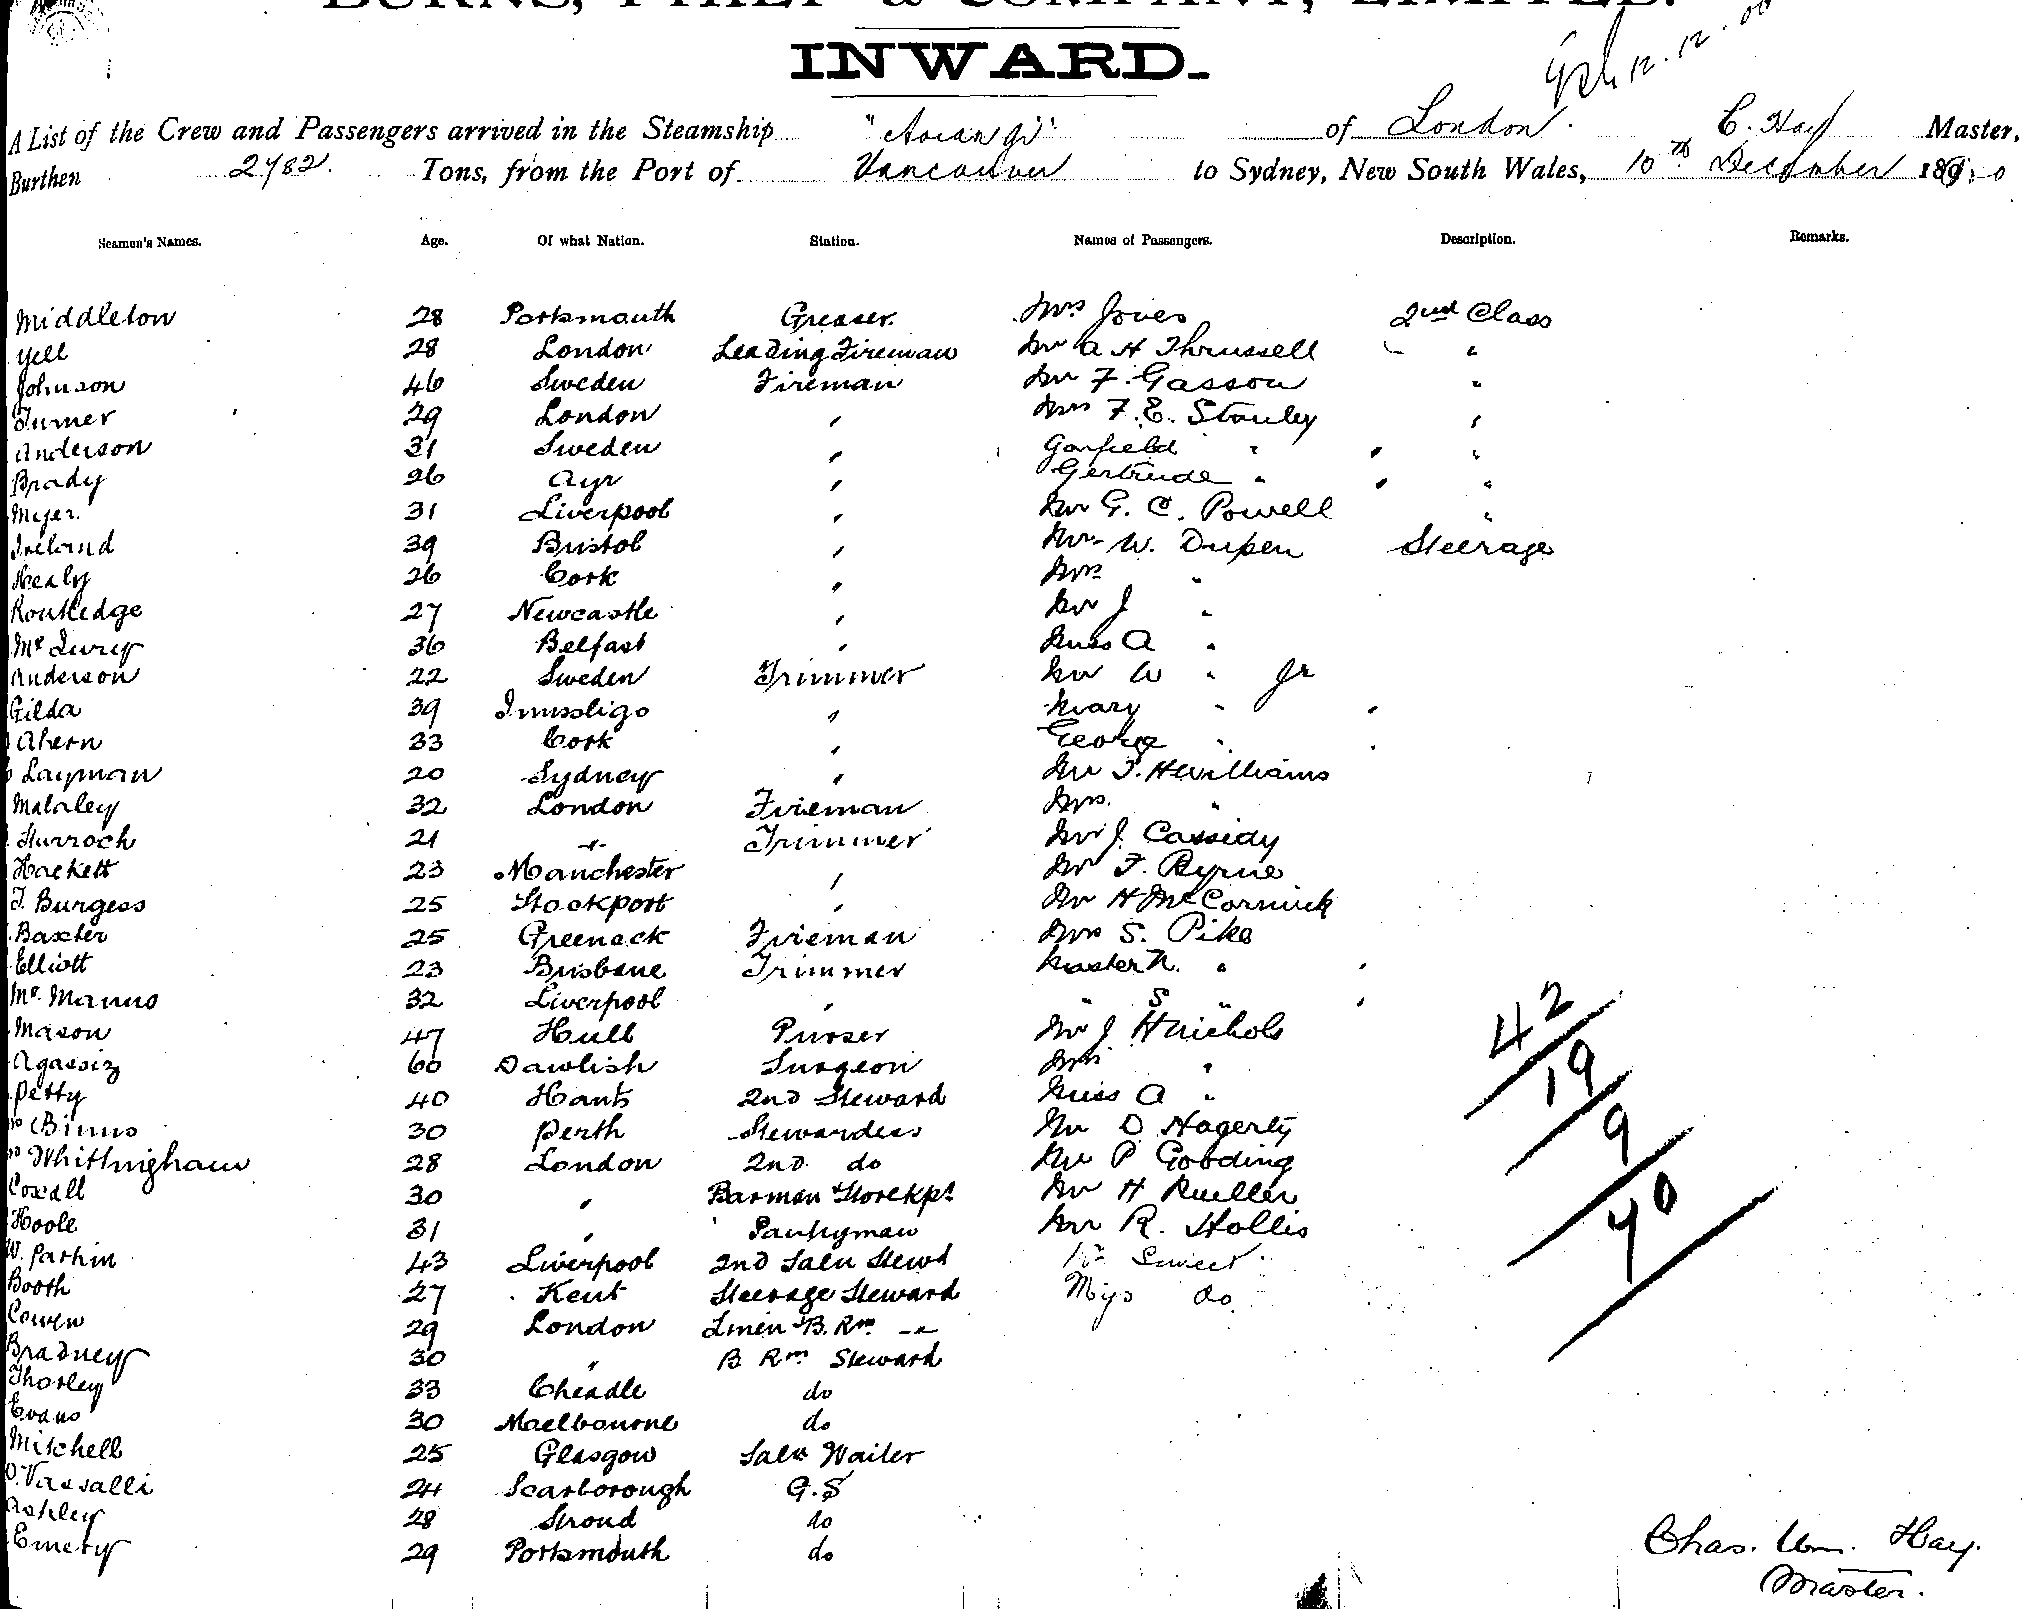 BURNS, PHILP & COMPANY, LIMITED.
INWARD.
12.12.00
A List of the Crew and Passengers arrived in the Steamship "Aorangi" of London. C. Hay Master,
Burthen 2782. Tons, from the Port of Vancouver to Sydney, New South Wales, 10th December 1900
Seamen's Names. Age. Of what Nation. Station. Names of Passengers. Description. Remarks.
Middleton 28 Portsmouth Greaser. Mrs Jones 2nd Class
Yell 28 London Leading Fireman Mr A H Thrussell "
Johnson 46 Sweden Fireman Mr F. Gasson "
Turner 29 London " Mrs F. E. Stanley "
Anderson 31 Sweden " Garfield " " "
Brady 26 Ayr " Gertrude " " "
Myer. 31 Liverpool " Mr G. C. Powell "
Ireland 39 Bristol " Mr W. Dupen Steerage
Healy 26 Cork " Mrs "
Routledge 27 Newcastle " Mr J "
Belfast 36 " Miss A "
Anderson 22 Sweden Trimmer Mr W " Jr
Gilda 39 " Mary " "
Ahern 33 Cork " George " "
Layman 20 Sydney " Mr T. H Williams
Malaley 32 London Fireman Mrs. "
Sturroch 21 " Trimmer Mr J. Cassidy
Hackett 23 Manchester " Mr F. Byrne
J. Burgess 25 Stockport " Mr H McCormick
Baxter 25 Greenock Fireman Mrs S. Pike
Elliott 23 Brisbane Trimmer Master N. " "
Mc. Manus 32 Liverpool " " S " "
Mason 47 Hull Purser Mr J H Nichols
Agassiz 60 Dawlish Surgeon Mrs "
Petty 40 Hants 2nd Steward Miss A "
Binns 30 Perth Stewardess Mr D Hagerty
Whittingham 28 London 2nd do Mr P Gooding
Coxall 30 " Barman & Storekpr Mr H Rueller
Hoole 31 " Pantryman Mr R. Hollis
W. Parkin 43 Liverpool 2nd Saln Stewd Mr Sweet
Booth 27 Kent Steerage Steward Mrs do
Cowen 29 London Linen & B. Rm "
Bradney 30 " B Rm Steward
Thorley 33 Cheadle do
Evans 30 Maelbourne do
Mitchell 25 Glasgow Saln Waiter
Vassalli 24 Scarborough G.S
Ashley 28 Stroud do
Emery 29 Portsmouth do
42
19
9
70
Chas. Wm. Hay.
Master.